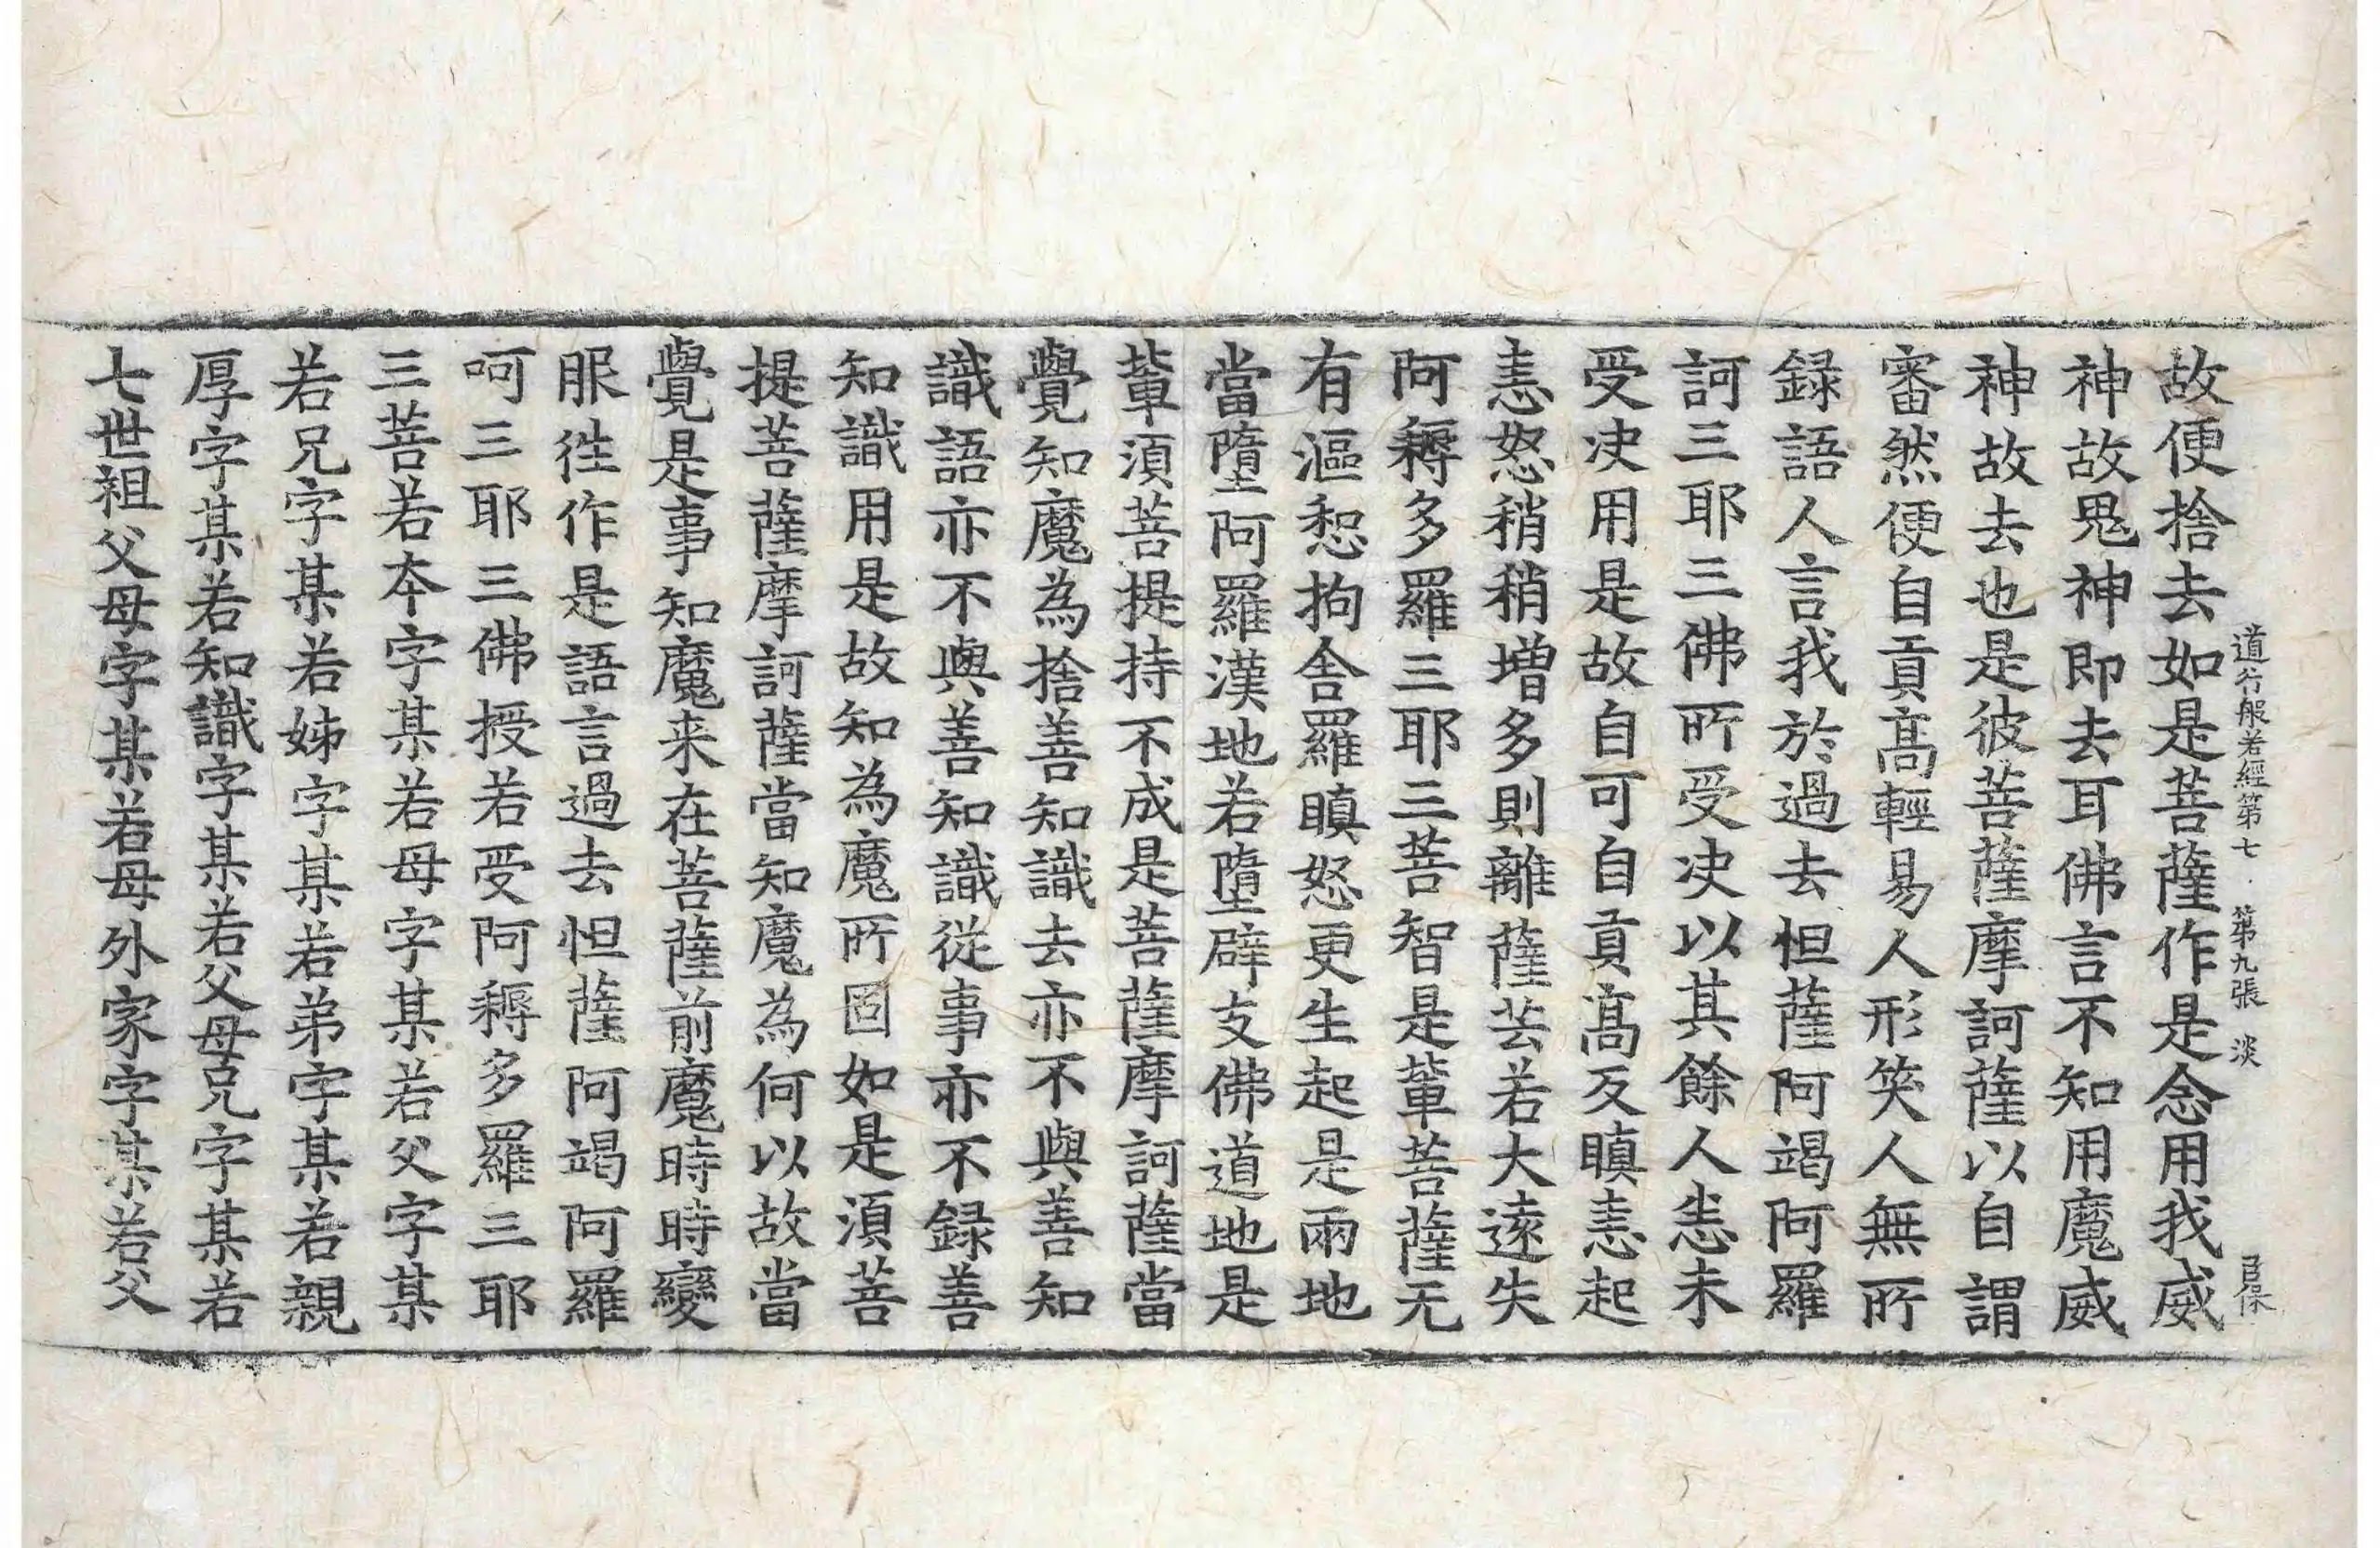 道行般若經第七 第九張 淡
故便捨去如是菩薩作是念用我威
神故鬼神即去耳佛言不知用魔威
神故去也是彼菩薩摩訶薩以自謂
審然便自貢高輕易人形笑人無所
録語人言我於過去怛薩阿竭阿羅
訶三耶三佛所受决以其餘人恙未
受决用是故自可自貢高反瞋恚起
恚怒稍稍增多則離薩芸若大遠失
阿耨多羅三耶三菩智是輩菩薩无
有漚惒拘舍羅瞋怒更生起是兩地
當墮阿羅漢地若墮辟支佛道地是
輩須菩提持不成是菩薩摩訶薩當
覺知魔為捨善知識去亦不與善知
識語亦不與善知識從事亦不録善
知識用是故知為魔所固如是須菩
提菩薩摩訶薩當知魔為何以故當
覺是事知魔来在菩薩前魔時時變
服往作是語言過去怛薩阿竭阿羅
呵三耶三佛授若受阿耨多羅三耶
三菩若本字某若母字某若父字某
若兄字某若姊字某若弟字某若親
厚字某若知識字某若父母兄字某若
七世祖父母字某若母外家字某若父